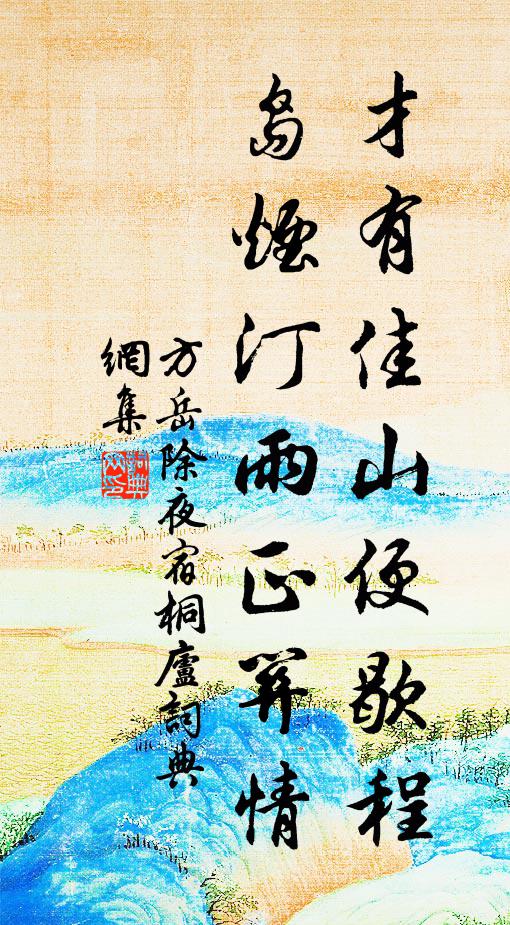 才有佳山便歇程
島煙汀雨正關情
方岳除夜宿桐廬詞典
網集